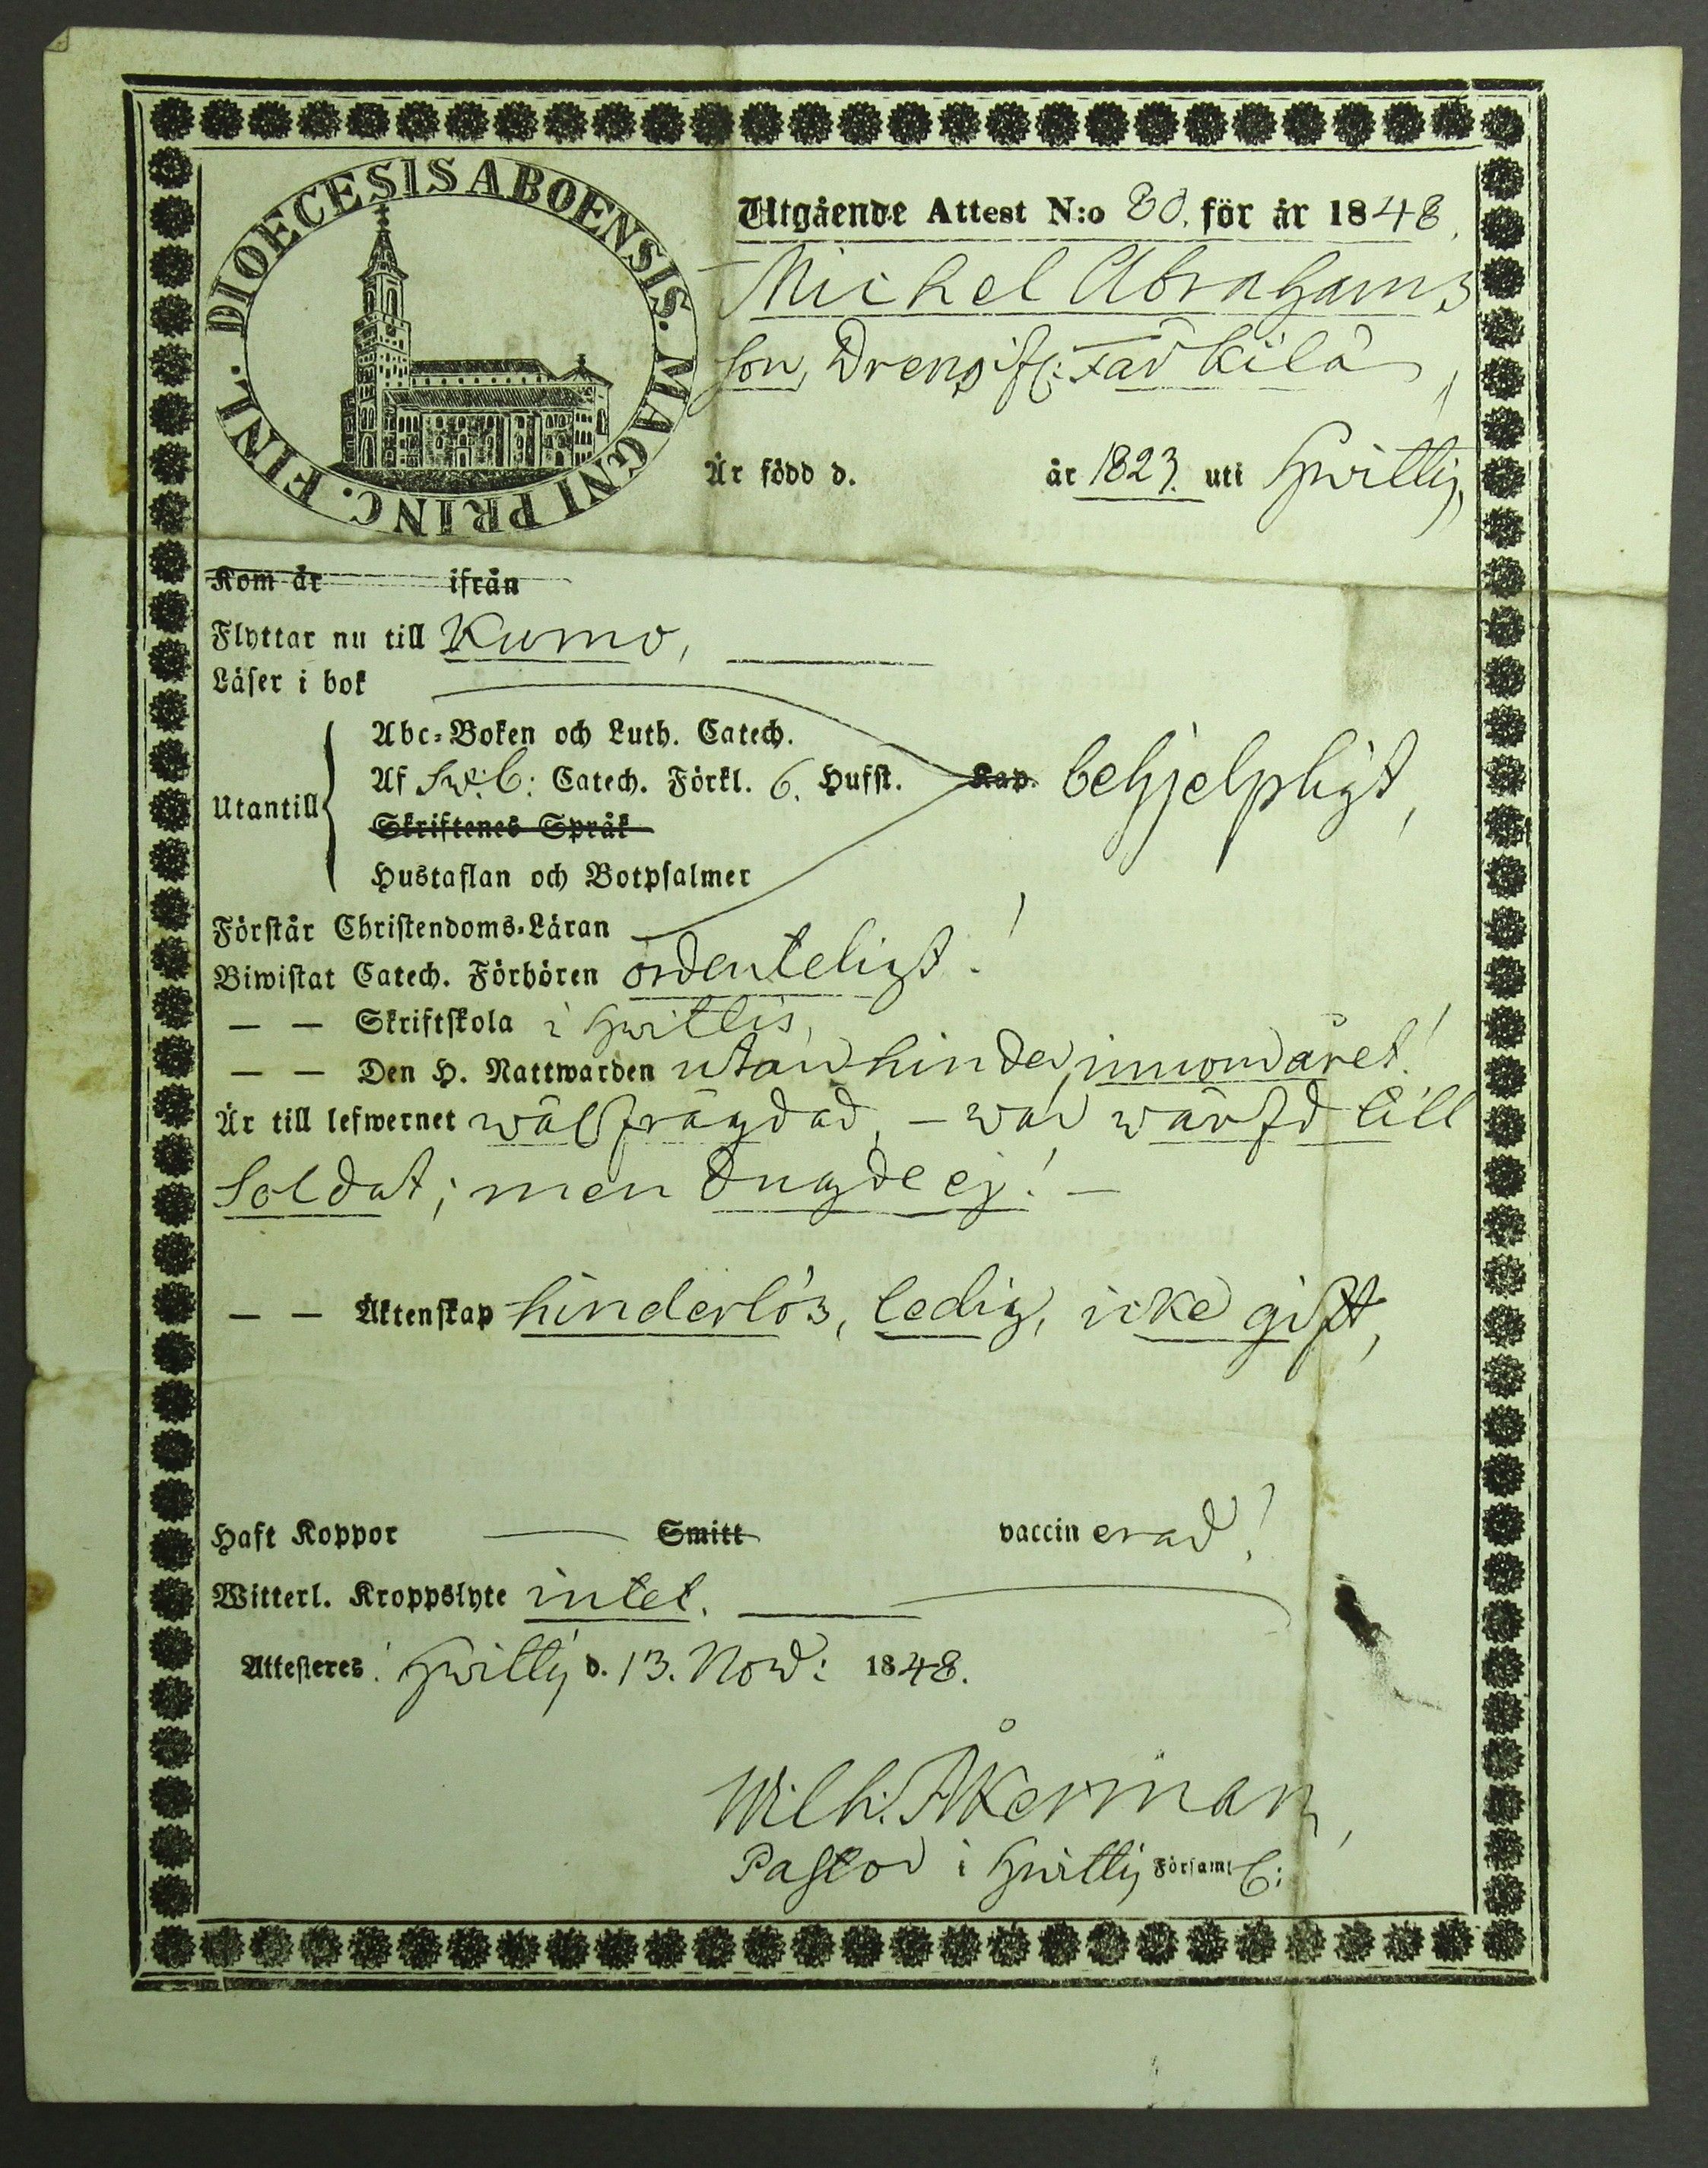 DIOECESIS ABOENSIS. MAGNI PRINC. FINL.
Utgående Attest N:o 80. för år 1848.
Michel Abrahams
son, Dreng
Är född d. år 1823. uti Hvittis,
Kom år ifrån
Flyttar nu till Kumo,
Läser i bok
Abc-Boken och Luth. Catech.
Utantill Af Sweb: Catech. Förkl. 6. Hufst. Kap. behjelpligt,
Skriftenes Språk
Hustaflan och Botpsalmer
Förstår Christendoms-Läran
Biwistat Catech. Förhören ordenteligt!
— — Skriftskola i Hvittis,
— — Den H. Nattwarden utan hinder, innom året!
Är till lefwernet wälfrägdad, – war wärfd till
Soldat; men dugde ej! –
— — Äktenskap hinderlös, ledig, icke gift,
Haft Koppor Smitt vaccinerad!
Witterl. Kroppslyte intet.
Attesteres: Hvittis d. 13. Nov: 1848.
Wilh: Åkerman,
Pastor i Hvittis Församl: